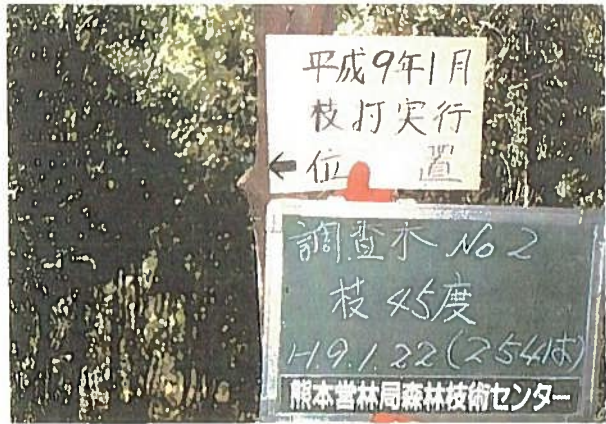 平成9年1月
枝打実行
← 位 置
調査木 No 2
枝 45度
H9.1.22(254は)
熊本営林局森林技術センター